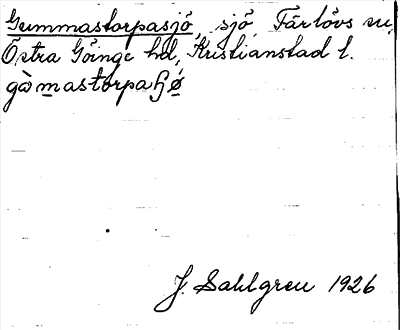 Gummastorpasjö, sjö, Färlövs sn,
Östra Göinge hd, Kristianstad l.
gòmastorpaɧǿ
J. Sahlgren 1926